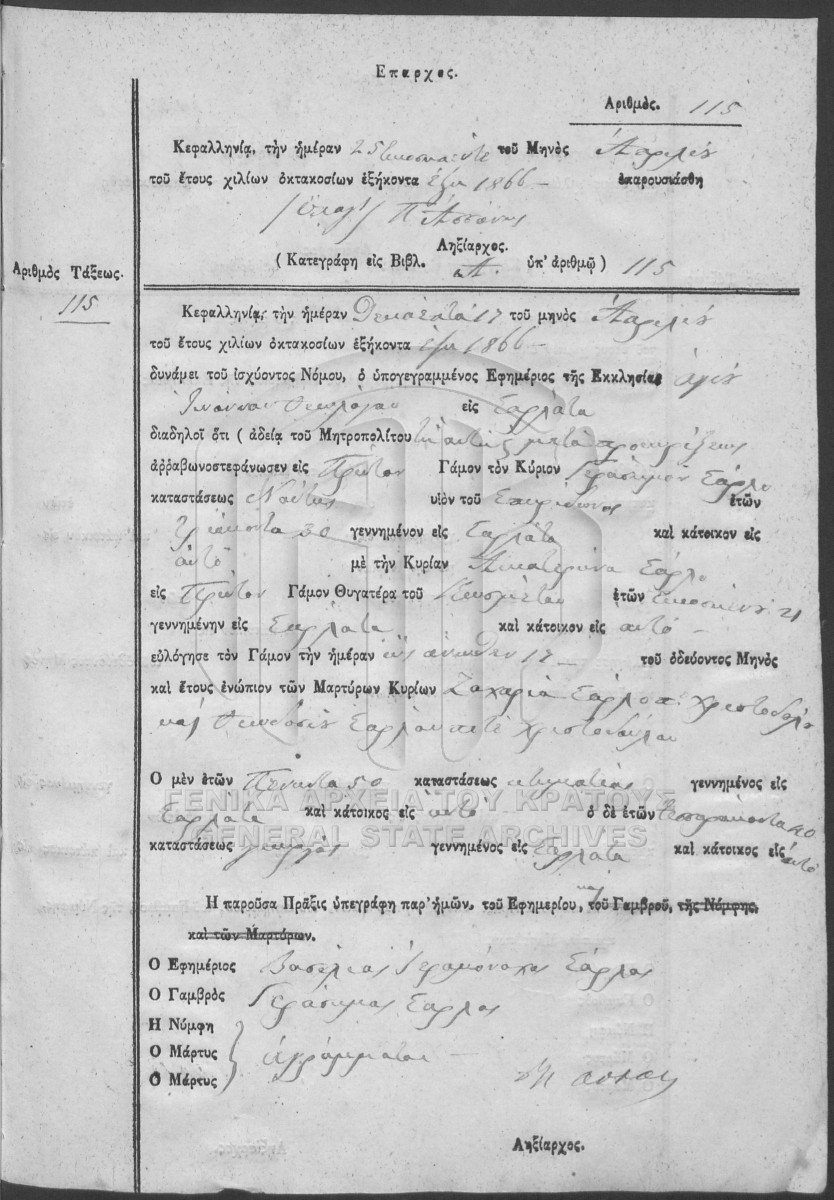 Επαρχος.
Αριθμὸς. 115
Κεφαλληνίᾳ, τὴν ἡμέραν 25 τοῦ Μηνὸς Ἀπριλίου
τοῦ ἔτους χιλίων ὀκτακοσίων ἑξήκοντα ἕξη 1866 — ἐπαρουσιάσθη
Ληξίαρχος.
( Κατεγράφη εἰς Βιβλ. Α. ὑπ' ἀριθμῷ ) 115
Αριθμὸς Τάξεως.
115
Κεφαλληνίᾳ, τὴν ἡμέραν 17 τοῦ μηνὸς Ἀπριλίου
τοῦ ἔτους χιλίων ὀκτακοσίων ἑξήκοντα ἕξη 1866 —
δυνάμει τοῦ ἰσχύοντος Νόμου, ὁ ὑπογεγραμμένος Εφημέριος τῆς Εκκλησίας ἁγίου
Ἰωάννου Θεολόγου εἰς Σαρλάτα
διαδηλοῖ ὅτι ( ἀδείᾳ τοῦ Μητροπολίτου
ἀρραβωνοστεφάνωσεν εἰς Πρῶτον Γάμον τὸν Κύριον Γεράσιμον Σάρλο
καταστάσεως Ναύτης υἱὸν τοῦ Σπυρίδωνος ἐτῶν
τριάκοντα 30 γεννημένον εἰς Σαρλάτα καὶ κάτοικον εἰς
αὐτό μὲ τὴν Κυρίαν Αἰκατερίνα Σάρλο
εἰς Πρῶτον Γάμον Θυγατέρα τοῦ Κοσμέτου ἐτῶν 21
γεννημένην εἰς Σαρλάτα καὶ κάτοικον εἰς αὐτό —
εὐλόγησε τὸν Γάμον τὴν ἡμέραν ὡς ἄνωθεν 17 — τοῦ ὁδεύοντος Μηνὸς
καὶ ἔτους ἐνώπιον τῶν Μαρτύρων Κυρίων Ζαχαρία Σάρλο π. Χριστοδούλου
καὶ Θεοδοσίου Σάρλου ποτὲ Χριστοδούλου
Ο μὲν ἐτῶν Πενῆντα 50 καταστάσεως κτηματίας γεννημένος εἰς
Σαρλάτα καὶ κάτοικος εἰς αὐτό ὁ δὲ ἐτῶν Τεσσαράκοντα 40
καταστάσεως γεωργός γεννημένος εἰς Σαρλάτα καὶ κάτοικος εἰς αὐτό
Η παροῦσα Πρᾶξις ὑπεγράφη παρ' ἡμῶν, τοῦ Εφημερίου, καὶ τοῦ Γαμβροῦ, τῆς Νύμφης,
καὶ τῶν Μαρτύρων.
Ο Εφημέριος Βασίλειος Ἱερομόναχος Σάρλος
Ο Γαμβρὸς Γεράσιμος Σάρλος
Η Νύμφη
Ο Μάρτυς ἀγράμματοι —
Ο Μάρτυς
Ληξίαρχος.
ΓΕΝΙΚΑ ΑΡΧΕΙΑ ΤΟΥ ΚΡΑΤΟΥΣ
GENERAL STATE ARCHIVES